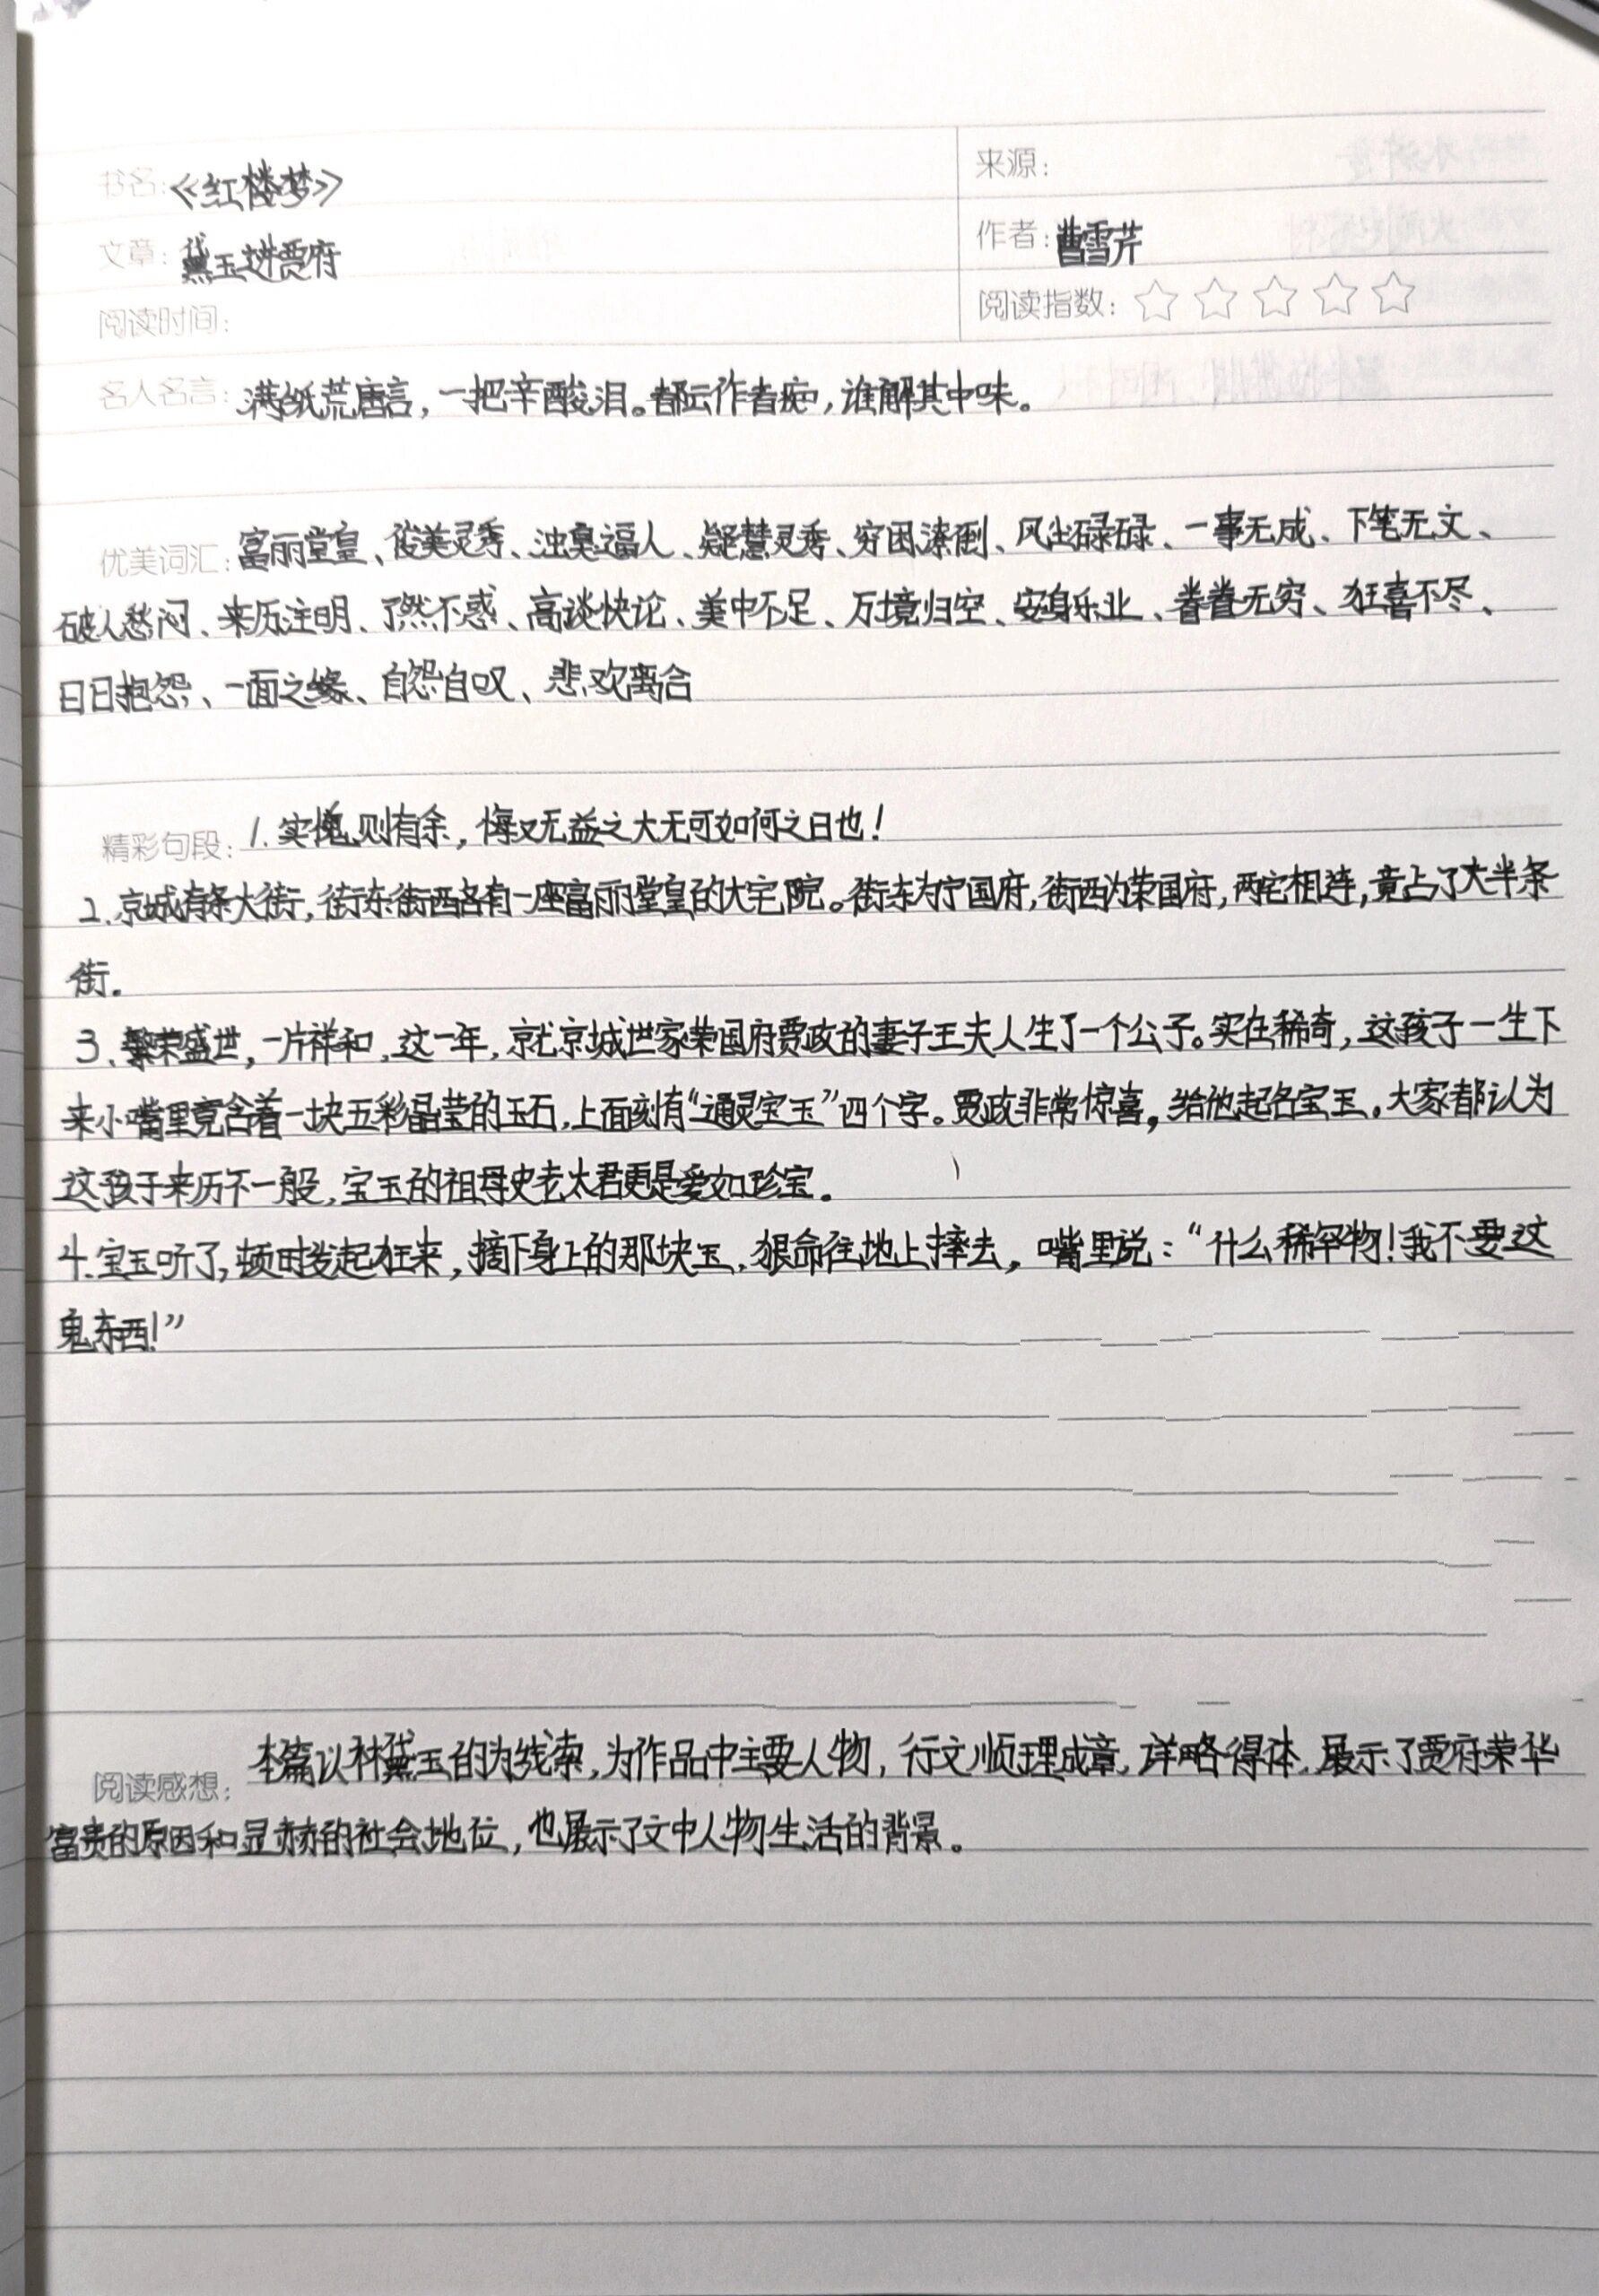 书名:《红楼梦》
来源:
文章: 黛玉进贾府
作者: 曹雪芹
阅读时间:
阅读指数:
名人名言: 满纸荒唐言,一把辛酸泪。都云作者痴,谁解其中味。
优美词汇: 富丽堂皇、俊美灵秀、浊臭逼人、聪慧灵秀、穷困潦倒、风尘碌碌、一事无成、下笔无文、
破人愁闷、来历注明、了然不惑、高谈快论、美中不足、万境归空、安身乐业、眷眷无穷、狂喜不尽、
日日抱怨、一面之缘、自怨自叹、悲欢离合
精彩句段: 1.实愧则有余,悔又无益之大无可如何之日也!
2.京城有条大街,街东街西各有一座富丽堂皇的大宅院。街东为宁国府,街西为荣国府,两宅相连,竟占了大半条
街。
3.繁荣盛世,一片祥和,这一年,京城世家荣国府贾政的妻子王夫人生了一个公子。实在稀奇,这孩子一生下
来小嘴里竟含着一块五彩晶莹的玉石,上面刻有“通灵宝玉”四个字。贾政非常惊喜,给他起名宝玉。大家都认为
这孩子来历不一般,宝玉的祖母史老太君更是爱如珍宝。
4.宝玉听了,顿时发起狂来,摘下身上的那块玉,狠命往地上摔去,嘴里说:“什么稀罕物!我不要这
鬼东西!”
阅读感想: 本篇以林黛玉的为线索,为作品中主要人物,行文顺理成章,详略得体,展示了贾府荣华
富贵的原因和显赫的社会地位,也展示了文中人物生活的背景。